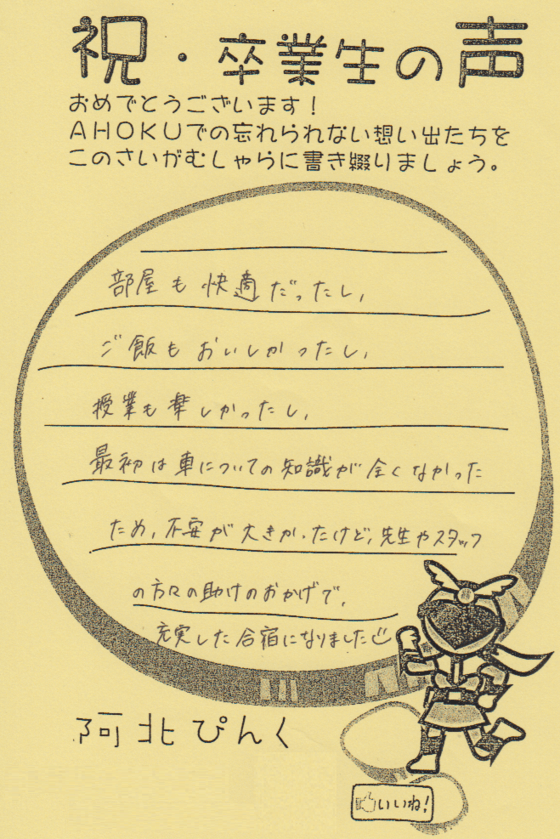 祝・卒業生の声
おめでとうございます！
AHOKUでの忘れられない想い出たちを
このさいがむしゃらに書き綴りましょう。
部屋も快適だったし、
ご飯もおいしかったし、
授業も楽しかったし、
最初は車についての知識が全くなかった
ため、不安が大きかったけど、先生やスタッフ
の方々の助けのおかげで、
充実した合宿になりました
阿北ぴんく
いいね!